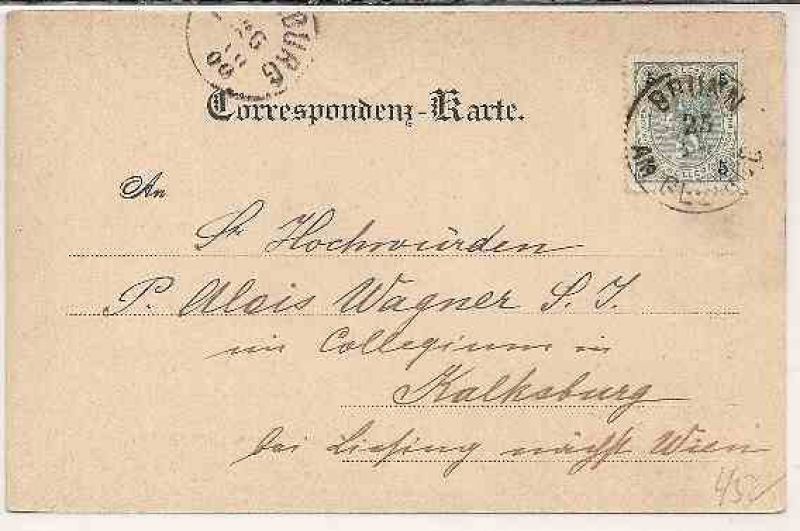 BURG
00
Correspondenz-Karte.
BRUNN
5 5
25
AM
5
An
Sr Hochwürden
P. Alois Wagner S. J.
im Collegium in
Kalksburg
bei Liesing nächst Wien